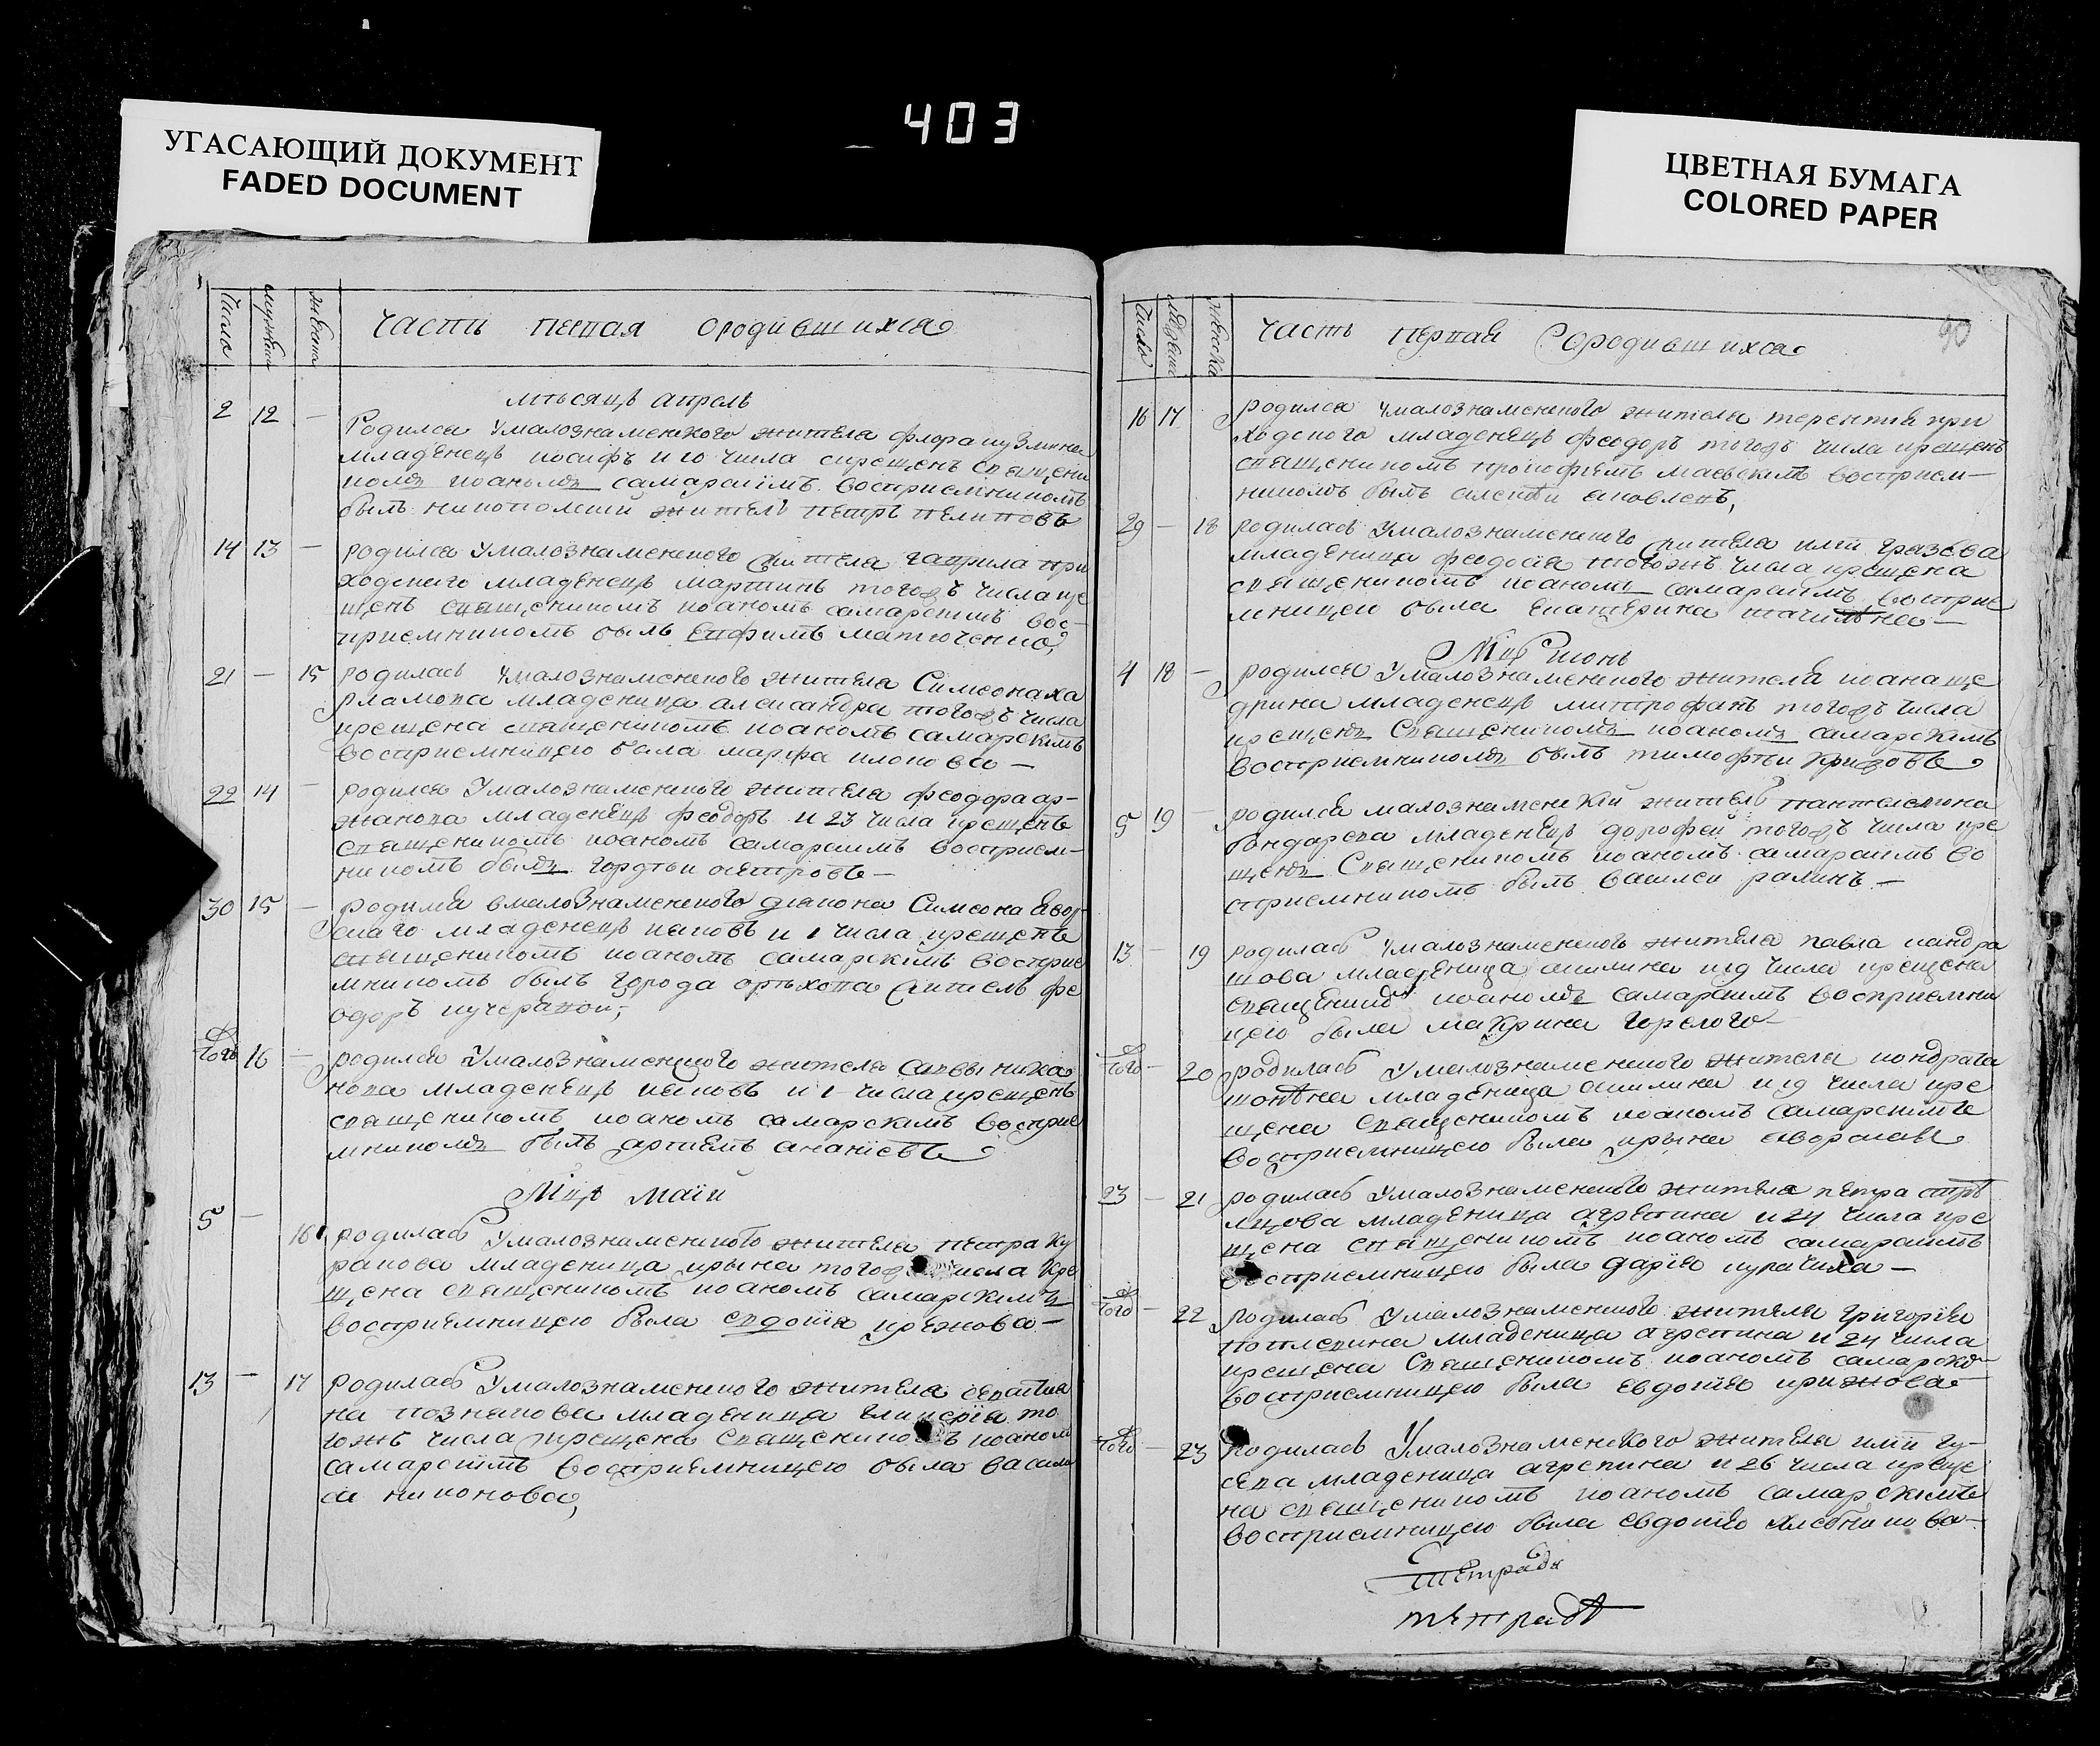 403
УГАСАЮЩИЙ ДОКУМЕНТ
FADED DOCUMENT
ЦВЕТНАЯ БУМАГА
COLORED PAPER
число
часть первая ородившихся
мѣсяцъ апрель
2 12 — Родился Умалознаменского жителя флора
младенецъ иосифъ и 10 числа
иоаномъ самарскимъ восприемникомъ
былъ никопольский житель петръ
14 13 — родился Умалознаменского жителя гаврила при
ходского младенецъ мартинъ тогожъ числа кре
щенъ священикомъ иоаномъ самарскимъ вос-
приемникомъ былъ евфимъ матюченко,
21 — 15 родилась Умалознаменского жителя Симеона ха
рламова младеница александра тогожъ числа
крещена священикомъ иоаномъ самарскимъ
восприемницею была марфа —
22 14 — родился Умалознаменского жителя феодора ар-
жанова младенецъ феодоръ и 23 числа крещенъ
священикомъ иоаномъ самарскимъ восприем-
никомъ былъ гордѣи —
30 15 — родился вмалознаменского диакона Симеона явор-
скаго младенецъ ияковъ и 1 числа крещенъ
священикомъ иоаномъ самарскимъ восприе
мникомъ былъ города орѣхова житель фе
одоръ кучеравои,
того 16 — родился Умалознаменского жителя саввы
младенецъ ияковъ и 1 числа крещенъ
священикомъ иоаномъ самарскимъ восприе
мникомъ былъ артиемъ ананіевъ
Мцъ маіи
5 — 16 родилась Умалознаменского жителя петра ку
ракова младеница ирына тогож числа кре
щена священикомъ иоаномъ самарскимъ
восприемницею была евдотия —
13 — 17 родилась Умалознаменского жителя севастия
на познякова младеница гликерія то
гожъ числа крещена священикомъ иоаном
самарскимъ восприемницею была васили
са никонова,
90
число
часть первая Сородившихся
16 17 родился Умалознаменского жителя терентия при
ходского младенецъ феодоръ тогожъ числа крещенъ
священикомъ прокофиемъ маевскимъ восприем-
никомъ былъ алексѣи яковлевъ,
29 — 18 родилась Умалознаменского жителя иліи
младеница феодосия тогожъ числа крещена
священикомъ иоаномъ самарскимъ восприе
мницею была екатерина —
Мцъ июнь
4 18 — родился Умалознаменского жителя иоана ще
дрина младенецъ митрофанъ тогожъ числа
крещенъ Священикомъ иоаномъ самарскимъ
восприемникомъ былъ тимофѣи
5 19 — родился малознаменский житель пантелемона
бондарева младенецъ дорофей тогожъ числа кре
щенъ Священикомъ иоаномъ самарскимъ во
сприемникомъ былъ василеи —
13 — 19 родилась Умалознаменского жителя павла кандра
шова младеница акилина и 19 числа крещена
иоаномъ самарскимъ восприемни
цею была макрина горелого
того — 20 родилась Умалознаменского жителя кондрата
младеница акилина и 19 числа кре
щена Священикомъ иоаномъ самарскимъ
восприемницею была ирына
23 — 21 родилась Умалознаменского жителя петра стрѣ
лцова младеница агрепина и 24 числа кре
щена священикомъ иоаномъ самарскимъ
восприемницею была дария —
того — 22 родилась Умалознаменского жителя григория
младеница агрепина и 24 числа
крещена Священикомъ иоаномъ самарски
восприемницею была евдокия
того — 23 родилась Умалознаменского жителя иліи гу-
сева младеница агрепина и 26 числа креще
на священикомъ иоаномъ самарскимъ
восприемницею была евдокия хлебникова —
тетрадь
тетрадь